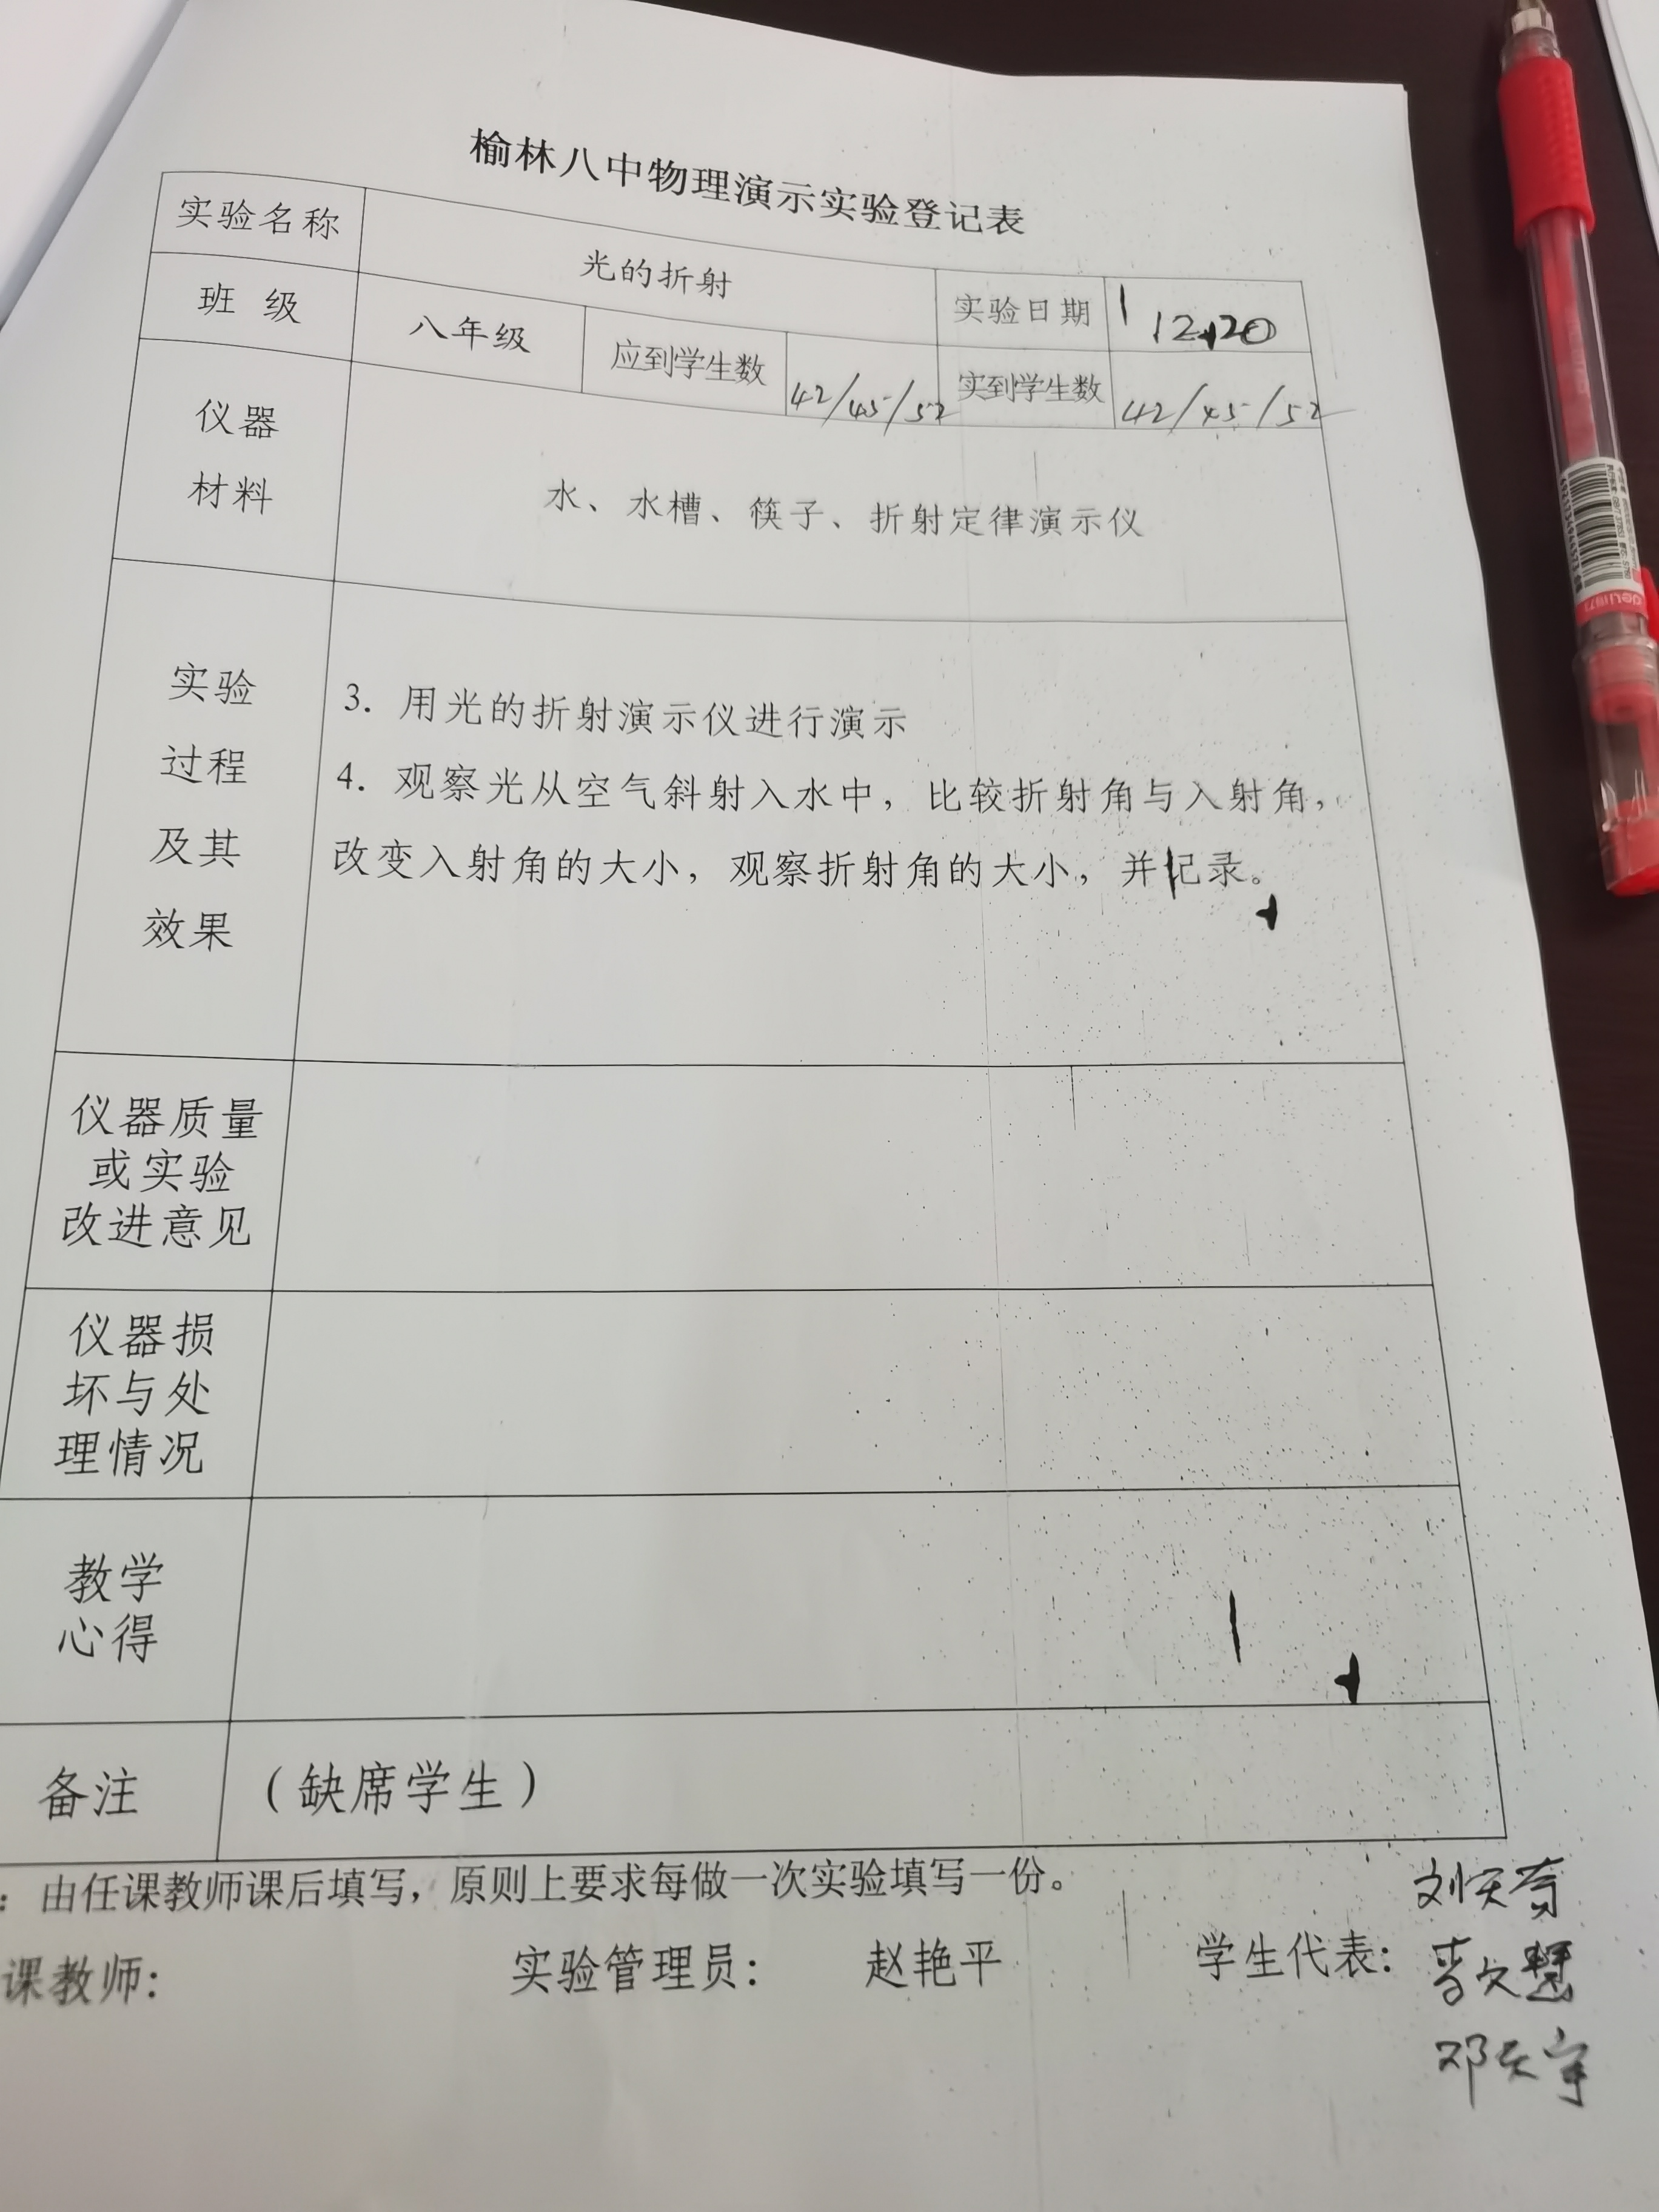 榆林八中物理演示实验登记表
实验名称 光的折射 实验日期 12.20
班 级 八年级 应到学生数 42/45/52 实到学生数 42/45/52
仪器
材料
水、水槽、筷子、折射定律演示仪
实验
过程
及其
效果
3. 用光的折射演示仪进行演示
4. 观察光从空气斜射入水中，比较折射角与入射角，
改变入射角的大小，观察折射角的大小，并记录。
仪器质量
或实验
改进意见
仪器损
坏与处
理情况
教学
心得
备注 （缺席学生）
：由任课教师课后填写，原则上要求每做一次实验填写一份。
课教师： 实验管理员： 赵艳平 学生代表：
李文慧
邓天宇
deli